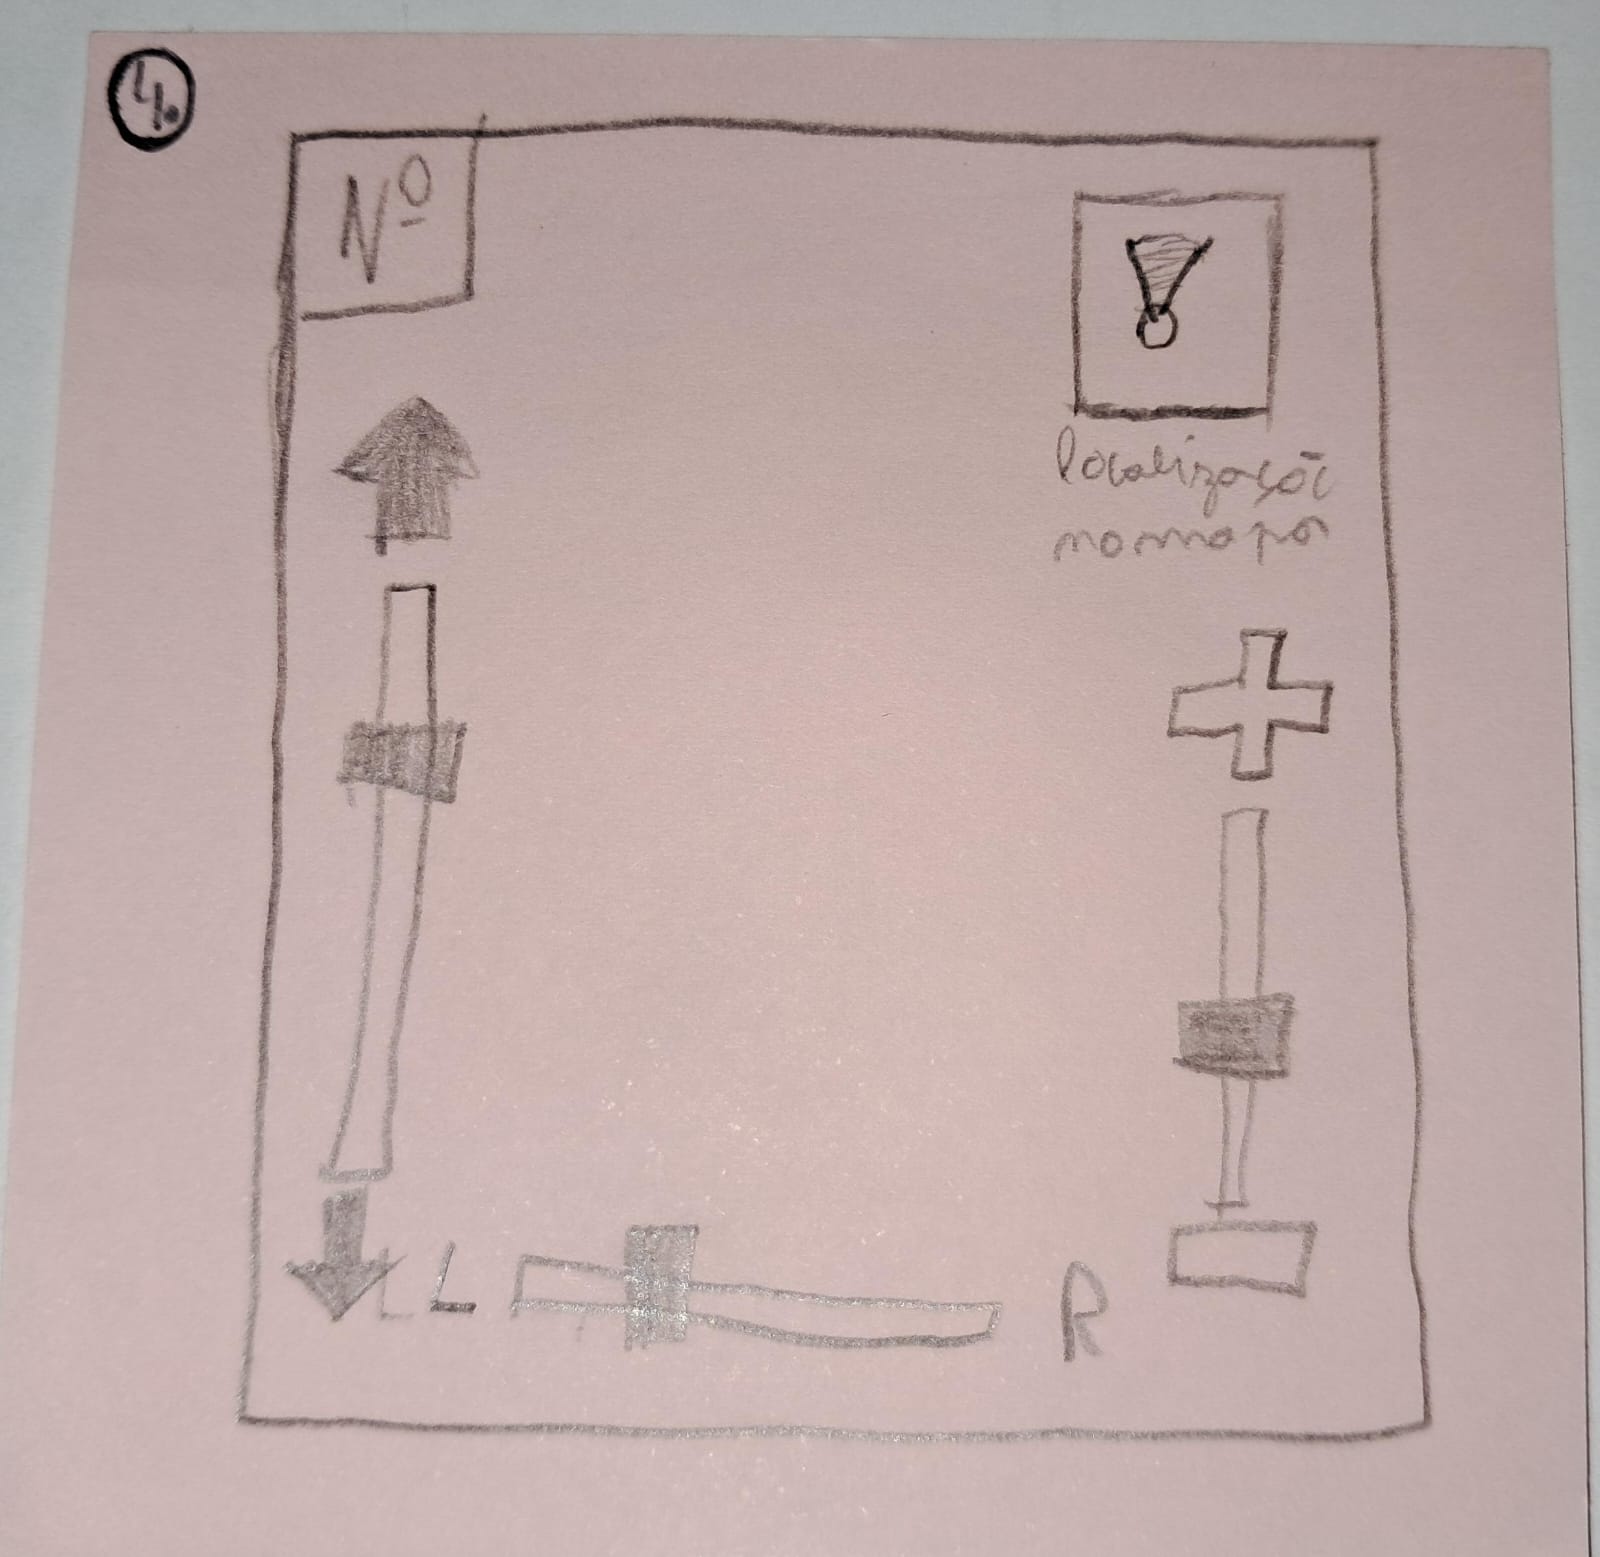 4.
Nº
localização
no mapa
L L
R